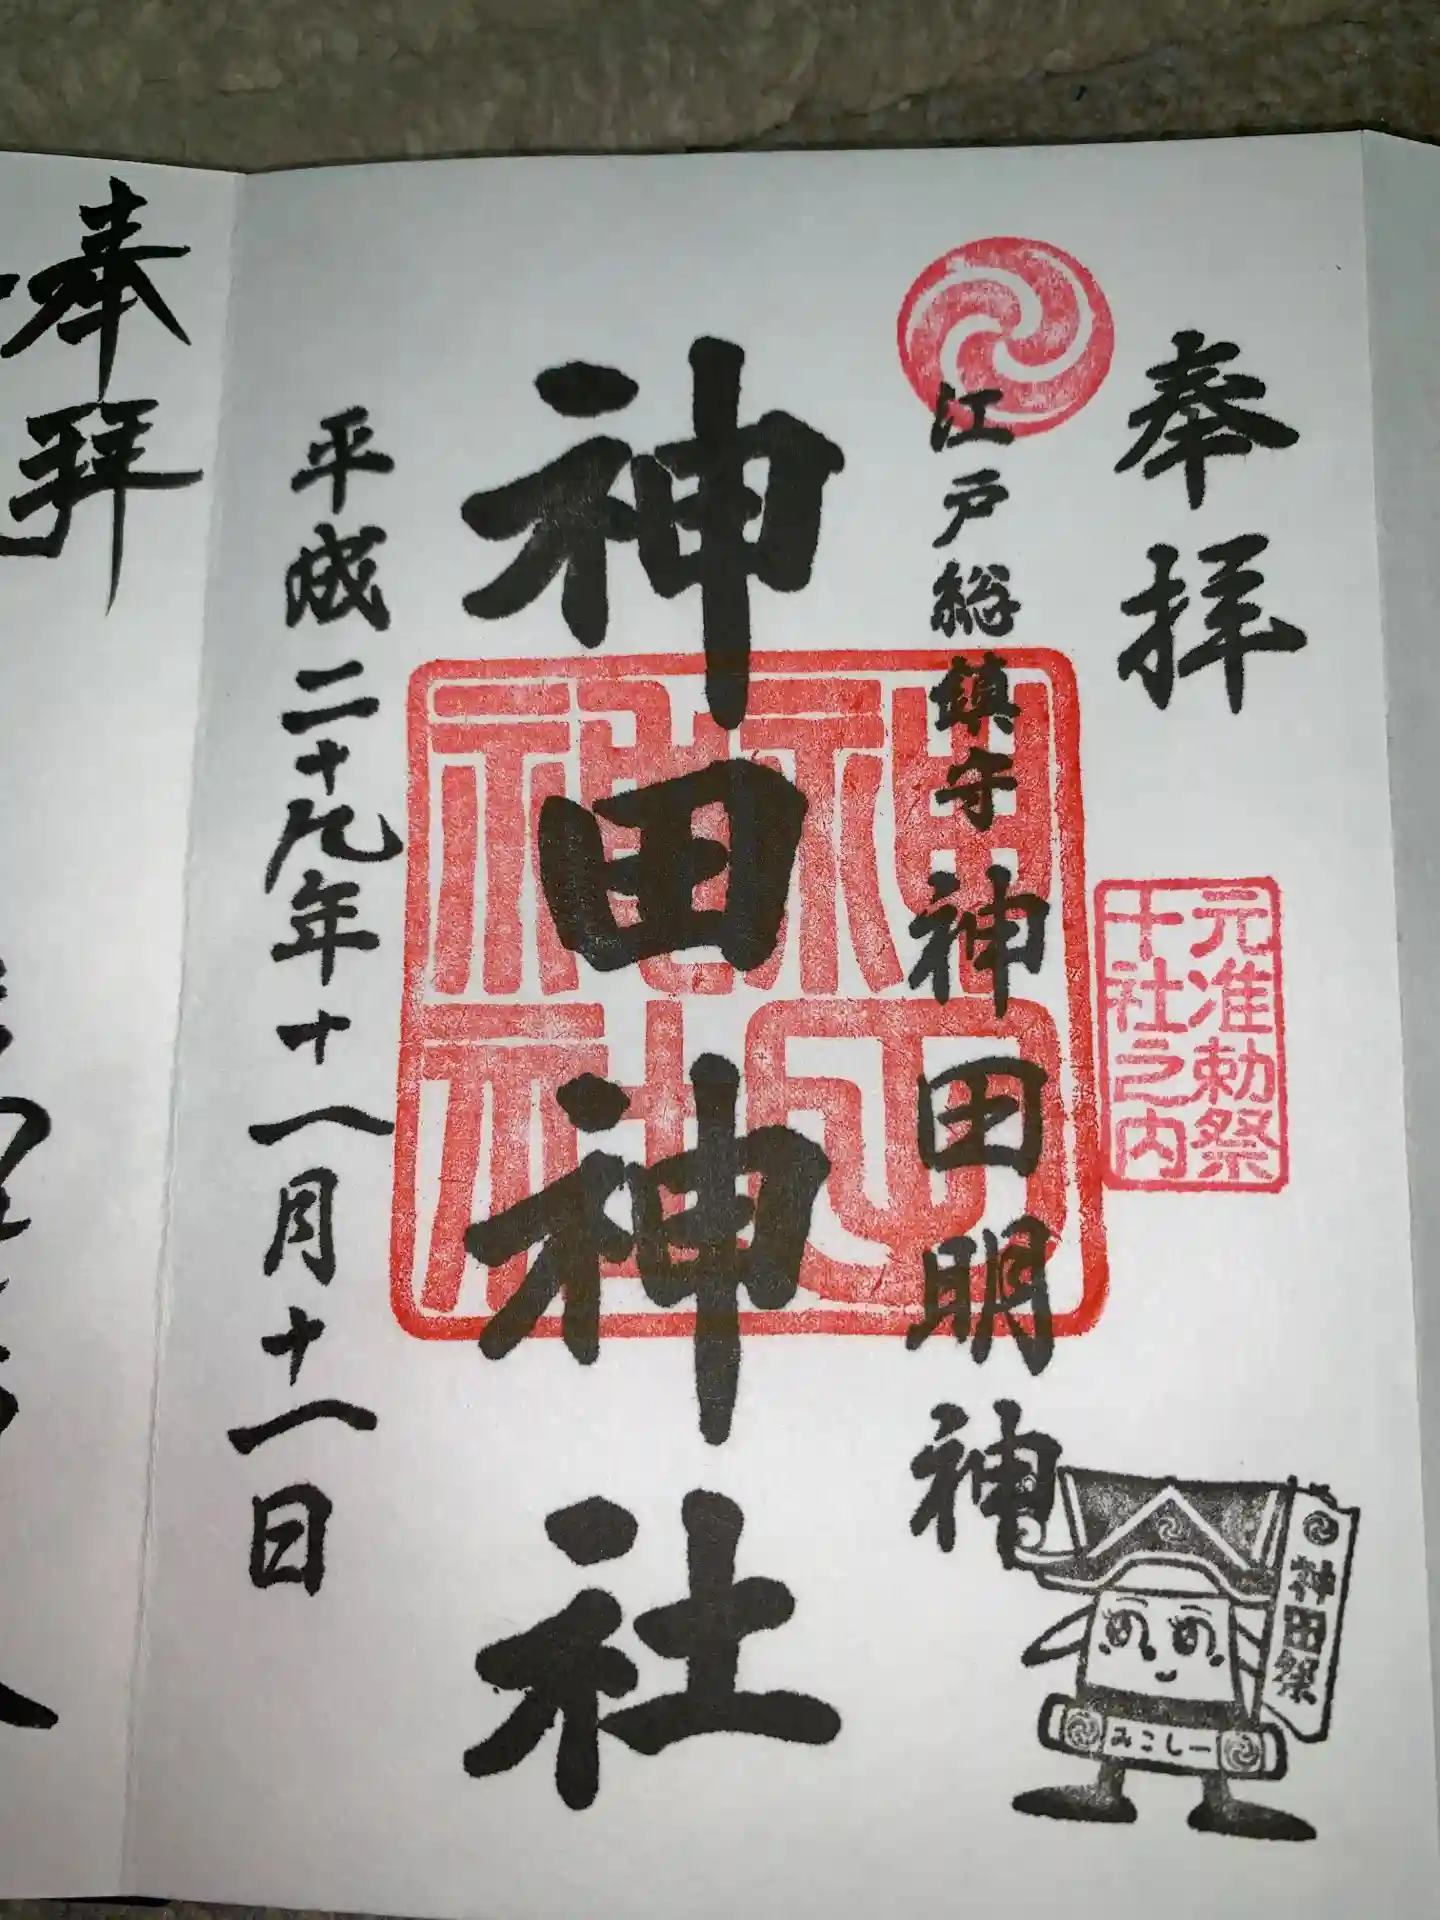 奉拝
元准勅祭
十社之内
江戸総鎮守神田明神
神田神社
神田
神社
平成二十九年十一月十一日
神田祭
みこしー
奉拝